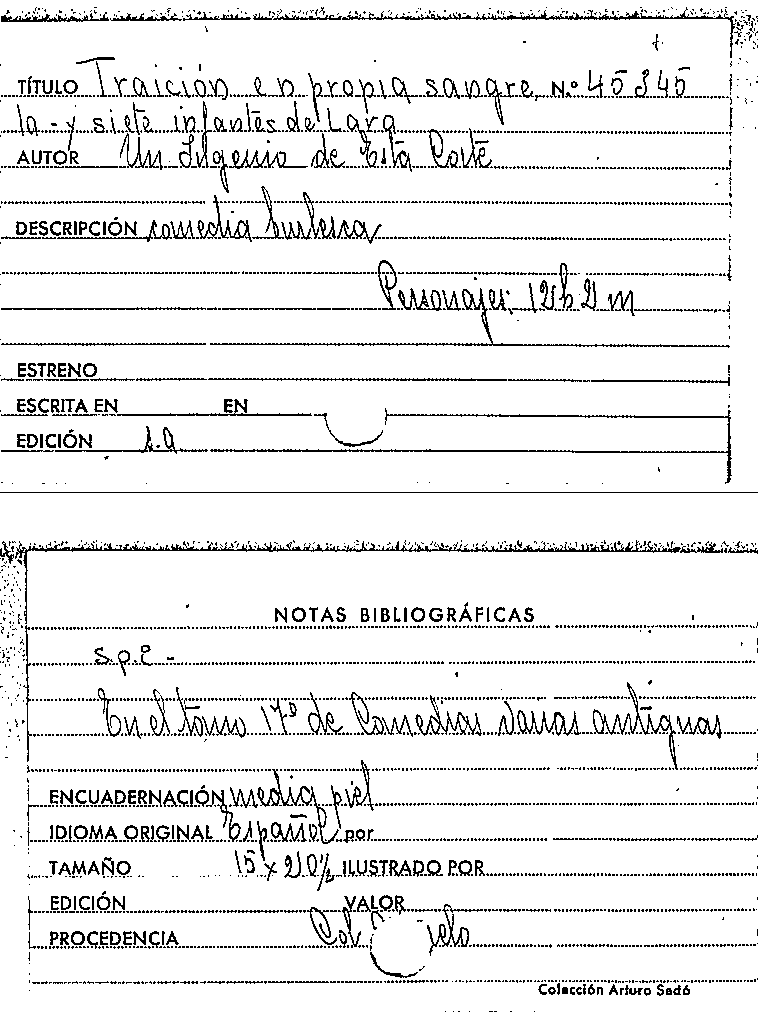 TÍTULO Traición en propia sangre, N.º 45345
la - y siete infantes de Lara
AUTOR Un Ingenio de Esta Corte
DESCRIPCIÓN comedia burlesca
Personajes: 12 h 2 m
ESTRENO
ESCRITA EN EN
EDICIÓN s.a
NOTAS BIBLIOGRÁFICAS
s.p.i -
En el tomo 17º de Comedias varias antiguas
ENCUADERNACIÓN media piel
IDIOMA ORIGINAL Español por
TAMAÑO 15 x 21 ILUSTRADO POR
EDICIÓN VALOR
PROCEDENCIA Col.
Colección Arturo Sedó